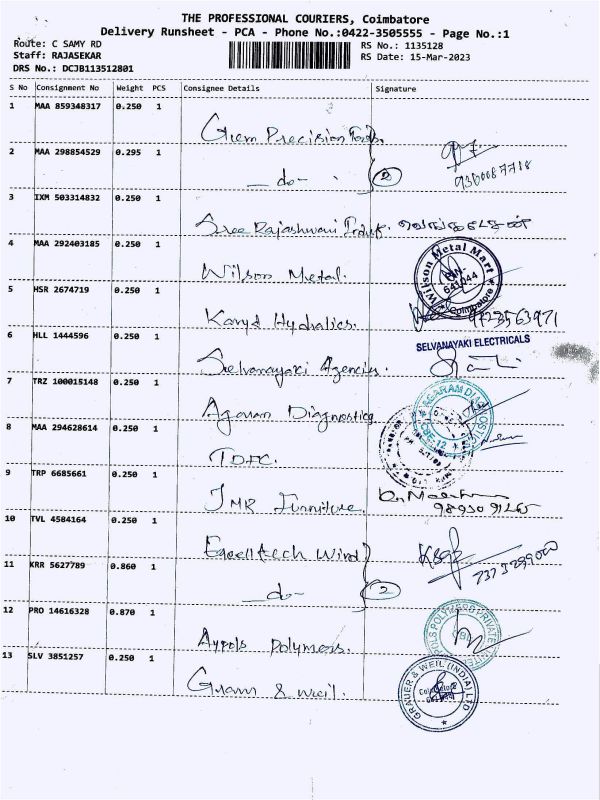 THE PROFESSIONAL COURIERS, Coimbatore
Delivery Runsheet - PCA - Phone No.:0422-3505555 - Page No.:1
Route: C SAMY RD RS No.: 1135128
Staff: RAJASEKAR RS Date: 15-Mar-2023
DRS No.: DCJB113512801
S No Consignment No Weight PCS Consignee Details Signature
1 MAA 859348317 0.250 1
Gem Precision Tools.
2 MAA 298854529 0.295 1
— do — 2
9360087718
3 IXM 503314832 0.250 1
Sree Rajashwari வெங்கடேசன்
4 MAA 292403185 0.250 1
Wilson Metal. Wilson Metal Mart 641044 Coimbatore
5 HSR 2674719 0.250 1
Hydralics.
6 HLL 1444596 0.250 1
SELVANAYAKI ELECTRICALS
Selvanayaki Agencies.
7 TRZ 100015148 0.250 1
Agaram Diagnostics AGARAM CBE-12
8 MAA 294628614 0.250 1
9 TRP 6685661 0.250 1
JMR Furniture
10 TVL 4584164 0.250 1
Wind
11 KRR 5627789 0.860 1
— do — 2
12 PRO 14616328 0.870 1
Polymers. POLYMERS PRIVATE
13 SLV 3851257 0.250 1
& weil. GRAUER & WEIL (INDIA) LTD Coimbatore